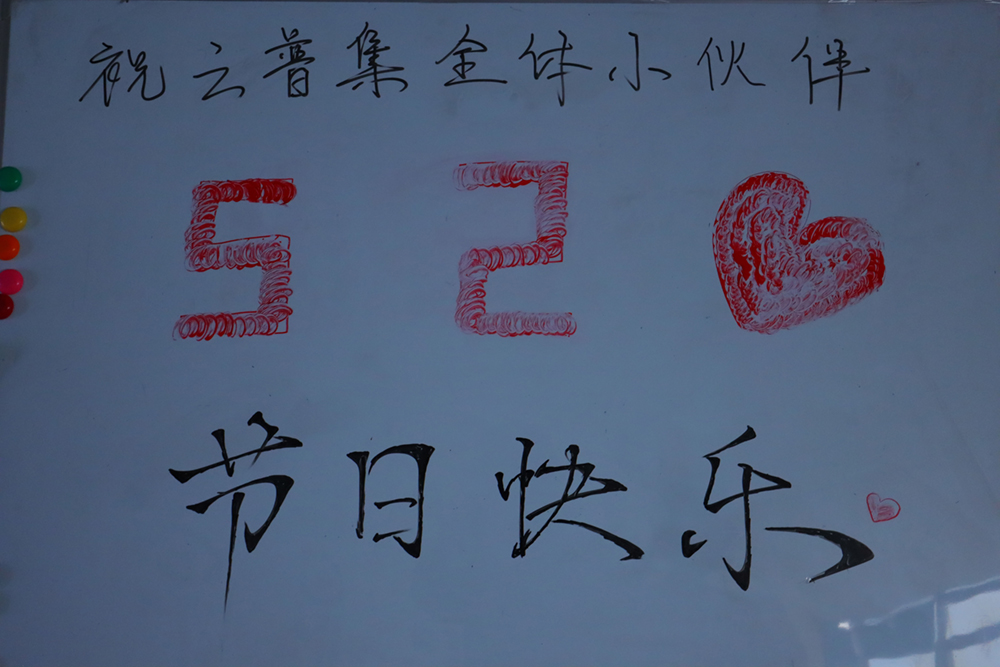 祝云普集全体小伙伴
52
节日快乐